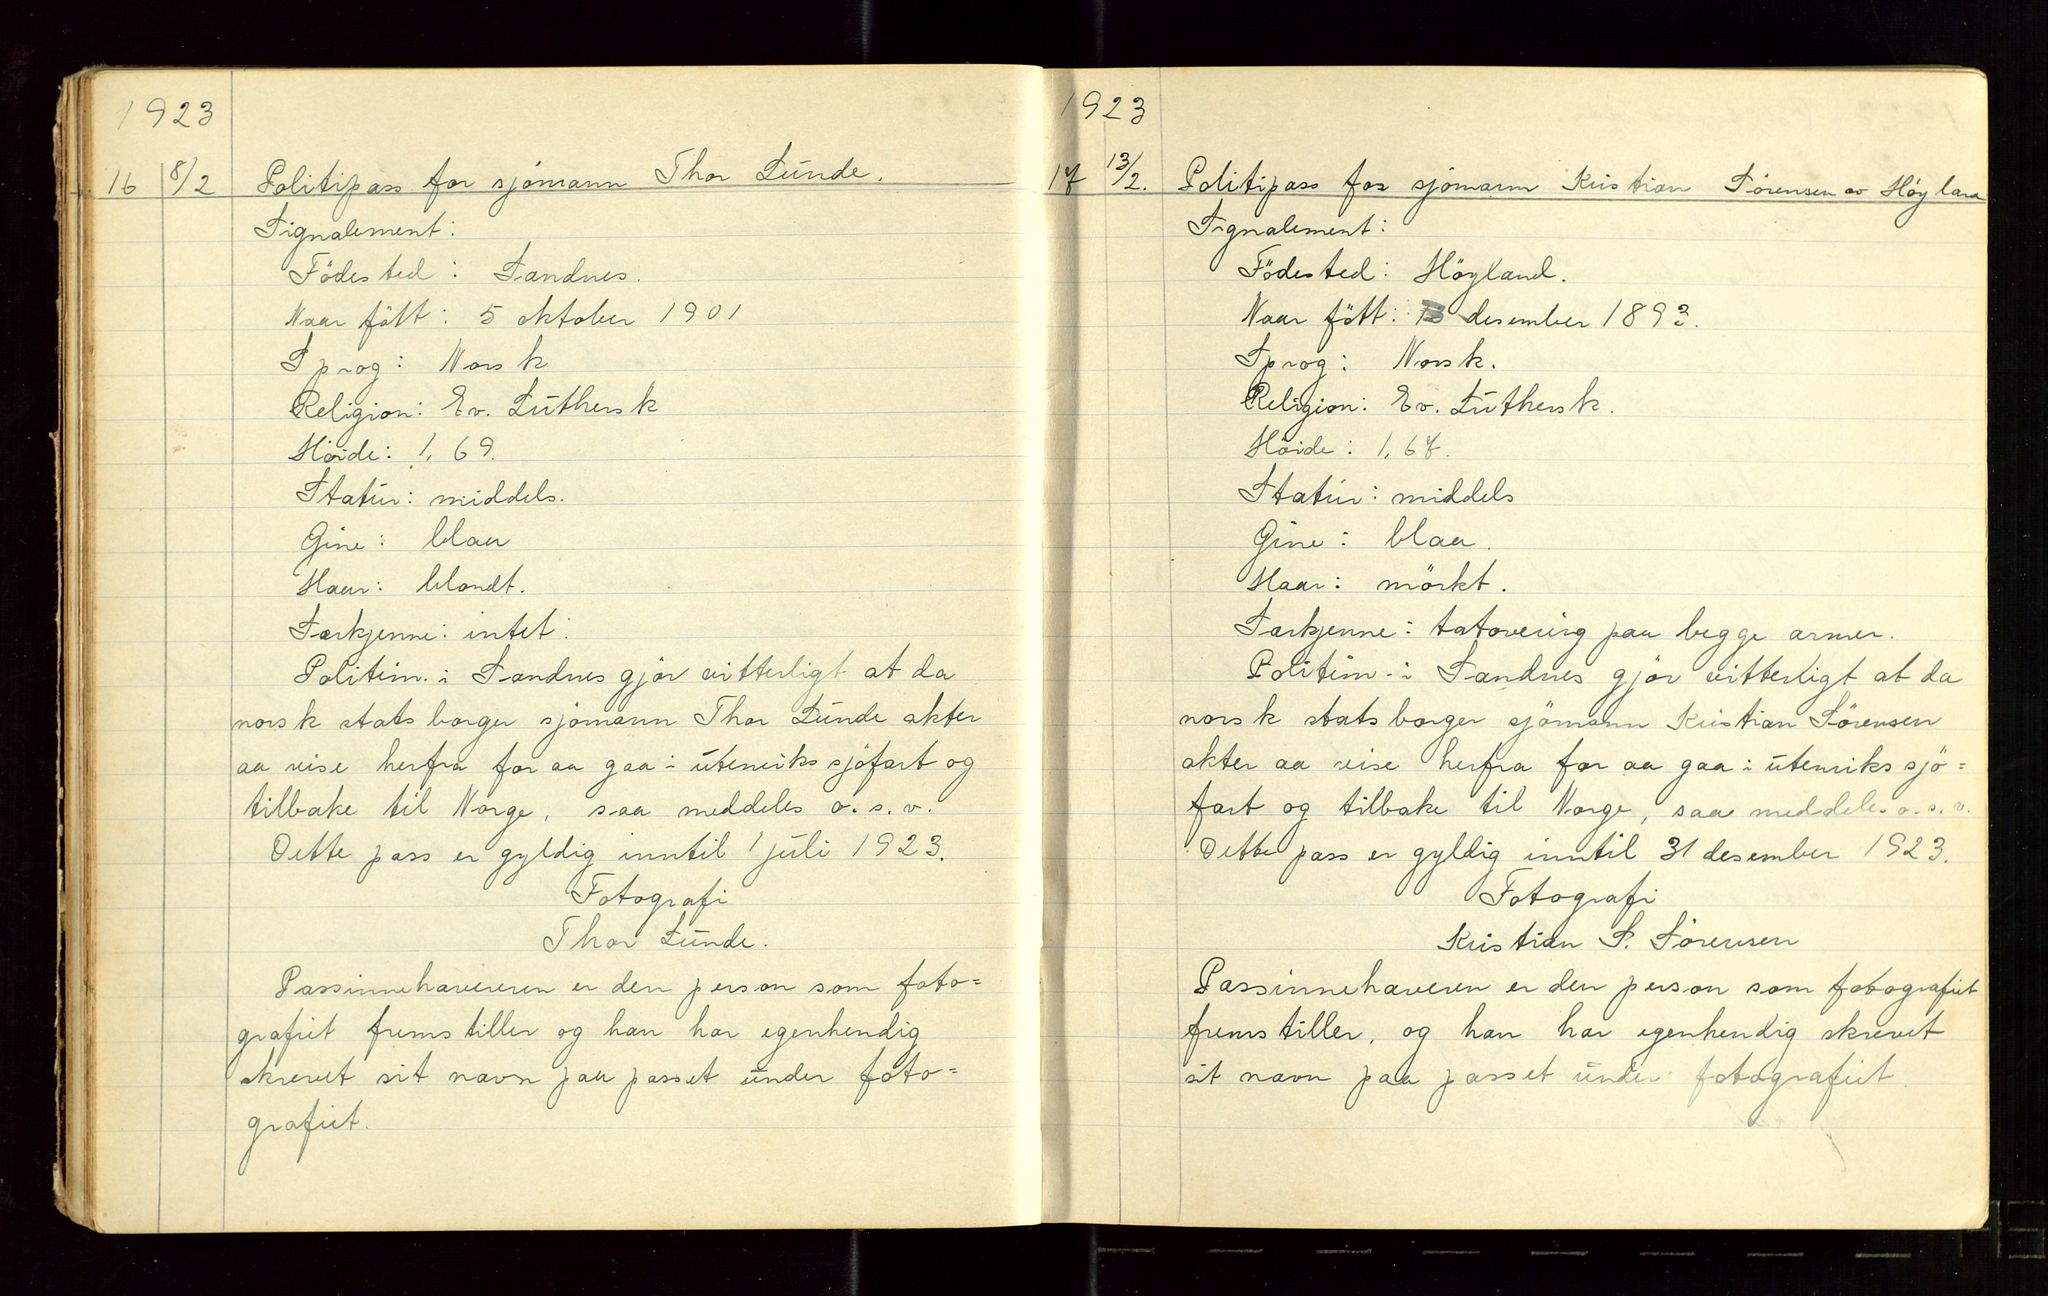 1923
16 8/2 Politipass for sjömann Thor Lunde.
Signalement:
Födested: Sandnes.
Naar fött: 5 oktober 1901
Sprog: Norsk
Religion: Ev. Luthersk
Höide: 1,69.
Statur: middels.
Öine: blaa
Haar: blondt.
Særkjenne: intet.
Politim. i Sandnes gjör vitterligt at da
norsk statsborger sjömann Thor Lunde akter
aa reise herfra for aa gaa i utenrikssjöfart og
tilbake til Norge, saa meddeles o.s.v.
Dette pass er gyldig inntil 1 juli 1923.
Fotografi
Thor Lunde.
Passinnehavereren er den person som foto=
grafiet fremstiller og han har egenhendig
skrevet sit navn paa passet under foto=
grafiet.
1923
17 13/2. Politipass for sjömann Kristian Sörensen av Höyland
Signalement:
Födested: Höyland.
Naar fött: desember 1893.
Sprog: Norsk.
Religion: Ev. Luthersk.
Höide: 1,67.
Statur: middels
Öine: blaa.
Haar: mörkt.
Særkjenne: tatovering paa begge armer.
Politim. i Sandnes gjör vitterligt at da
norsk statsborger sjömann Kristian Sörensen
akter aa reise herfra for aa gaa i utenriks sjö=
fart og tilbake til Norge, saa meddeles o.s.v.
Dette pass er gyldig inntil 31 desember 1923.
Fotografi
Kristian S. Sörensen
Passinnehaveren er den person som fotografiet
fremstiller, og han har egenhendig skrevet
sit navn paa passet under fotografiet.